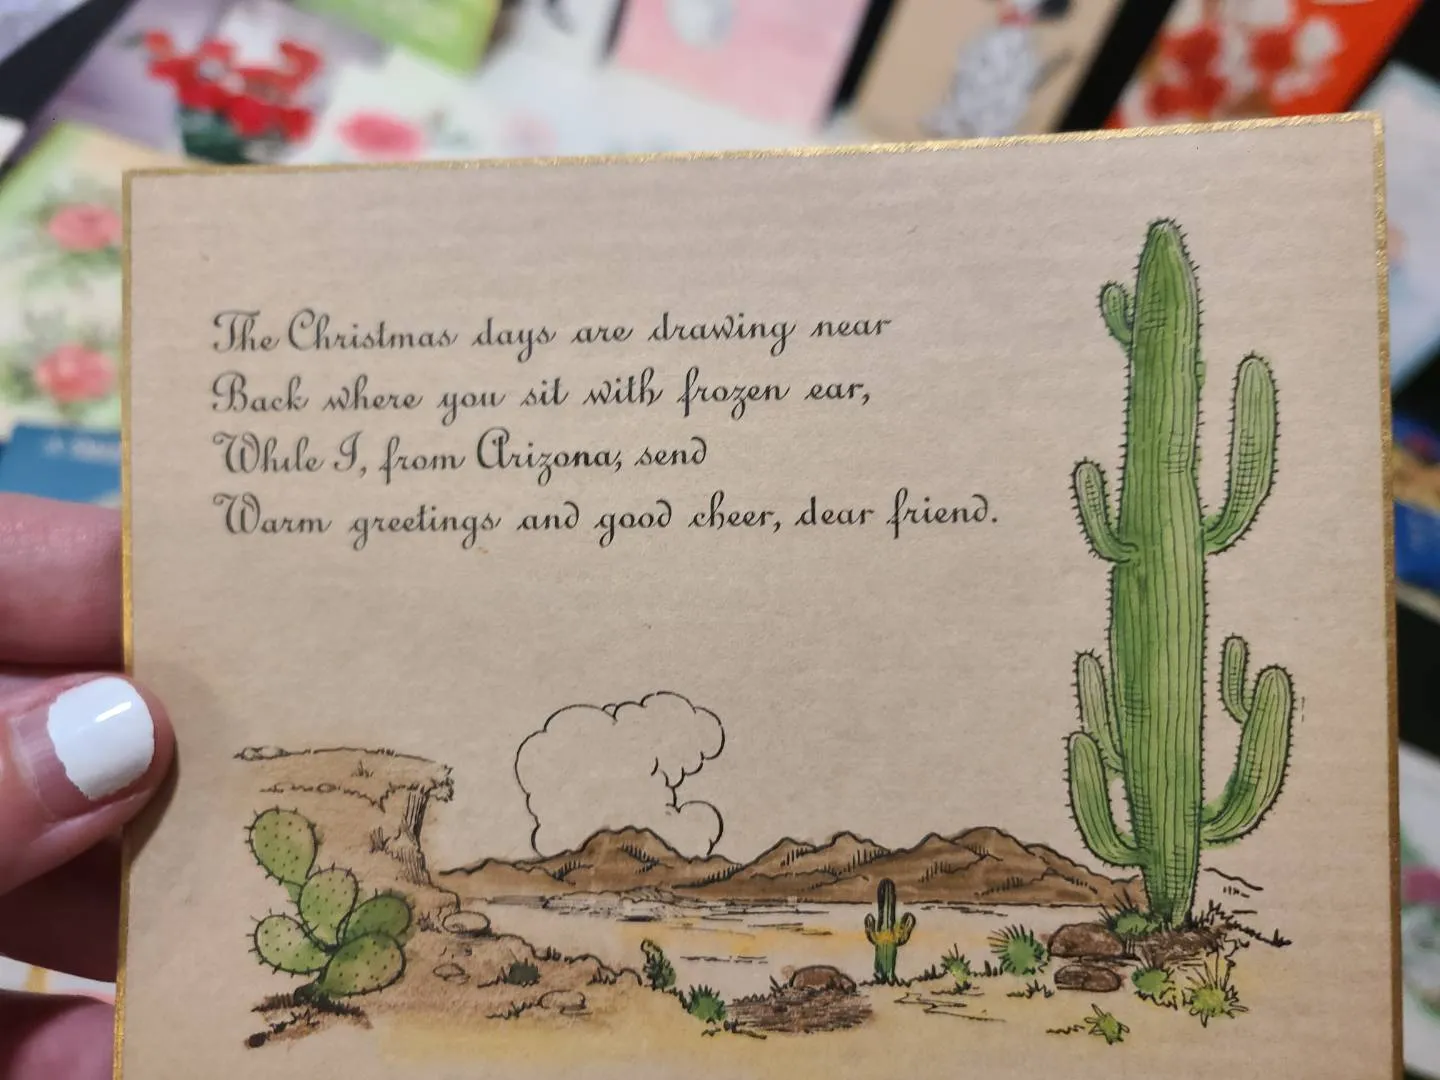 The Christmas days are drawing near
Back where you sit with frozen ear,
While I, from Arizona, send
Warm greetings and good cheer, dear friend.